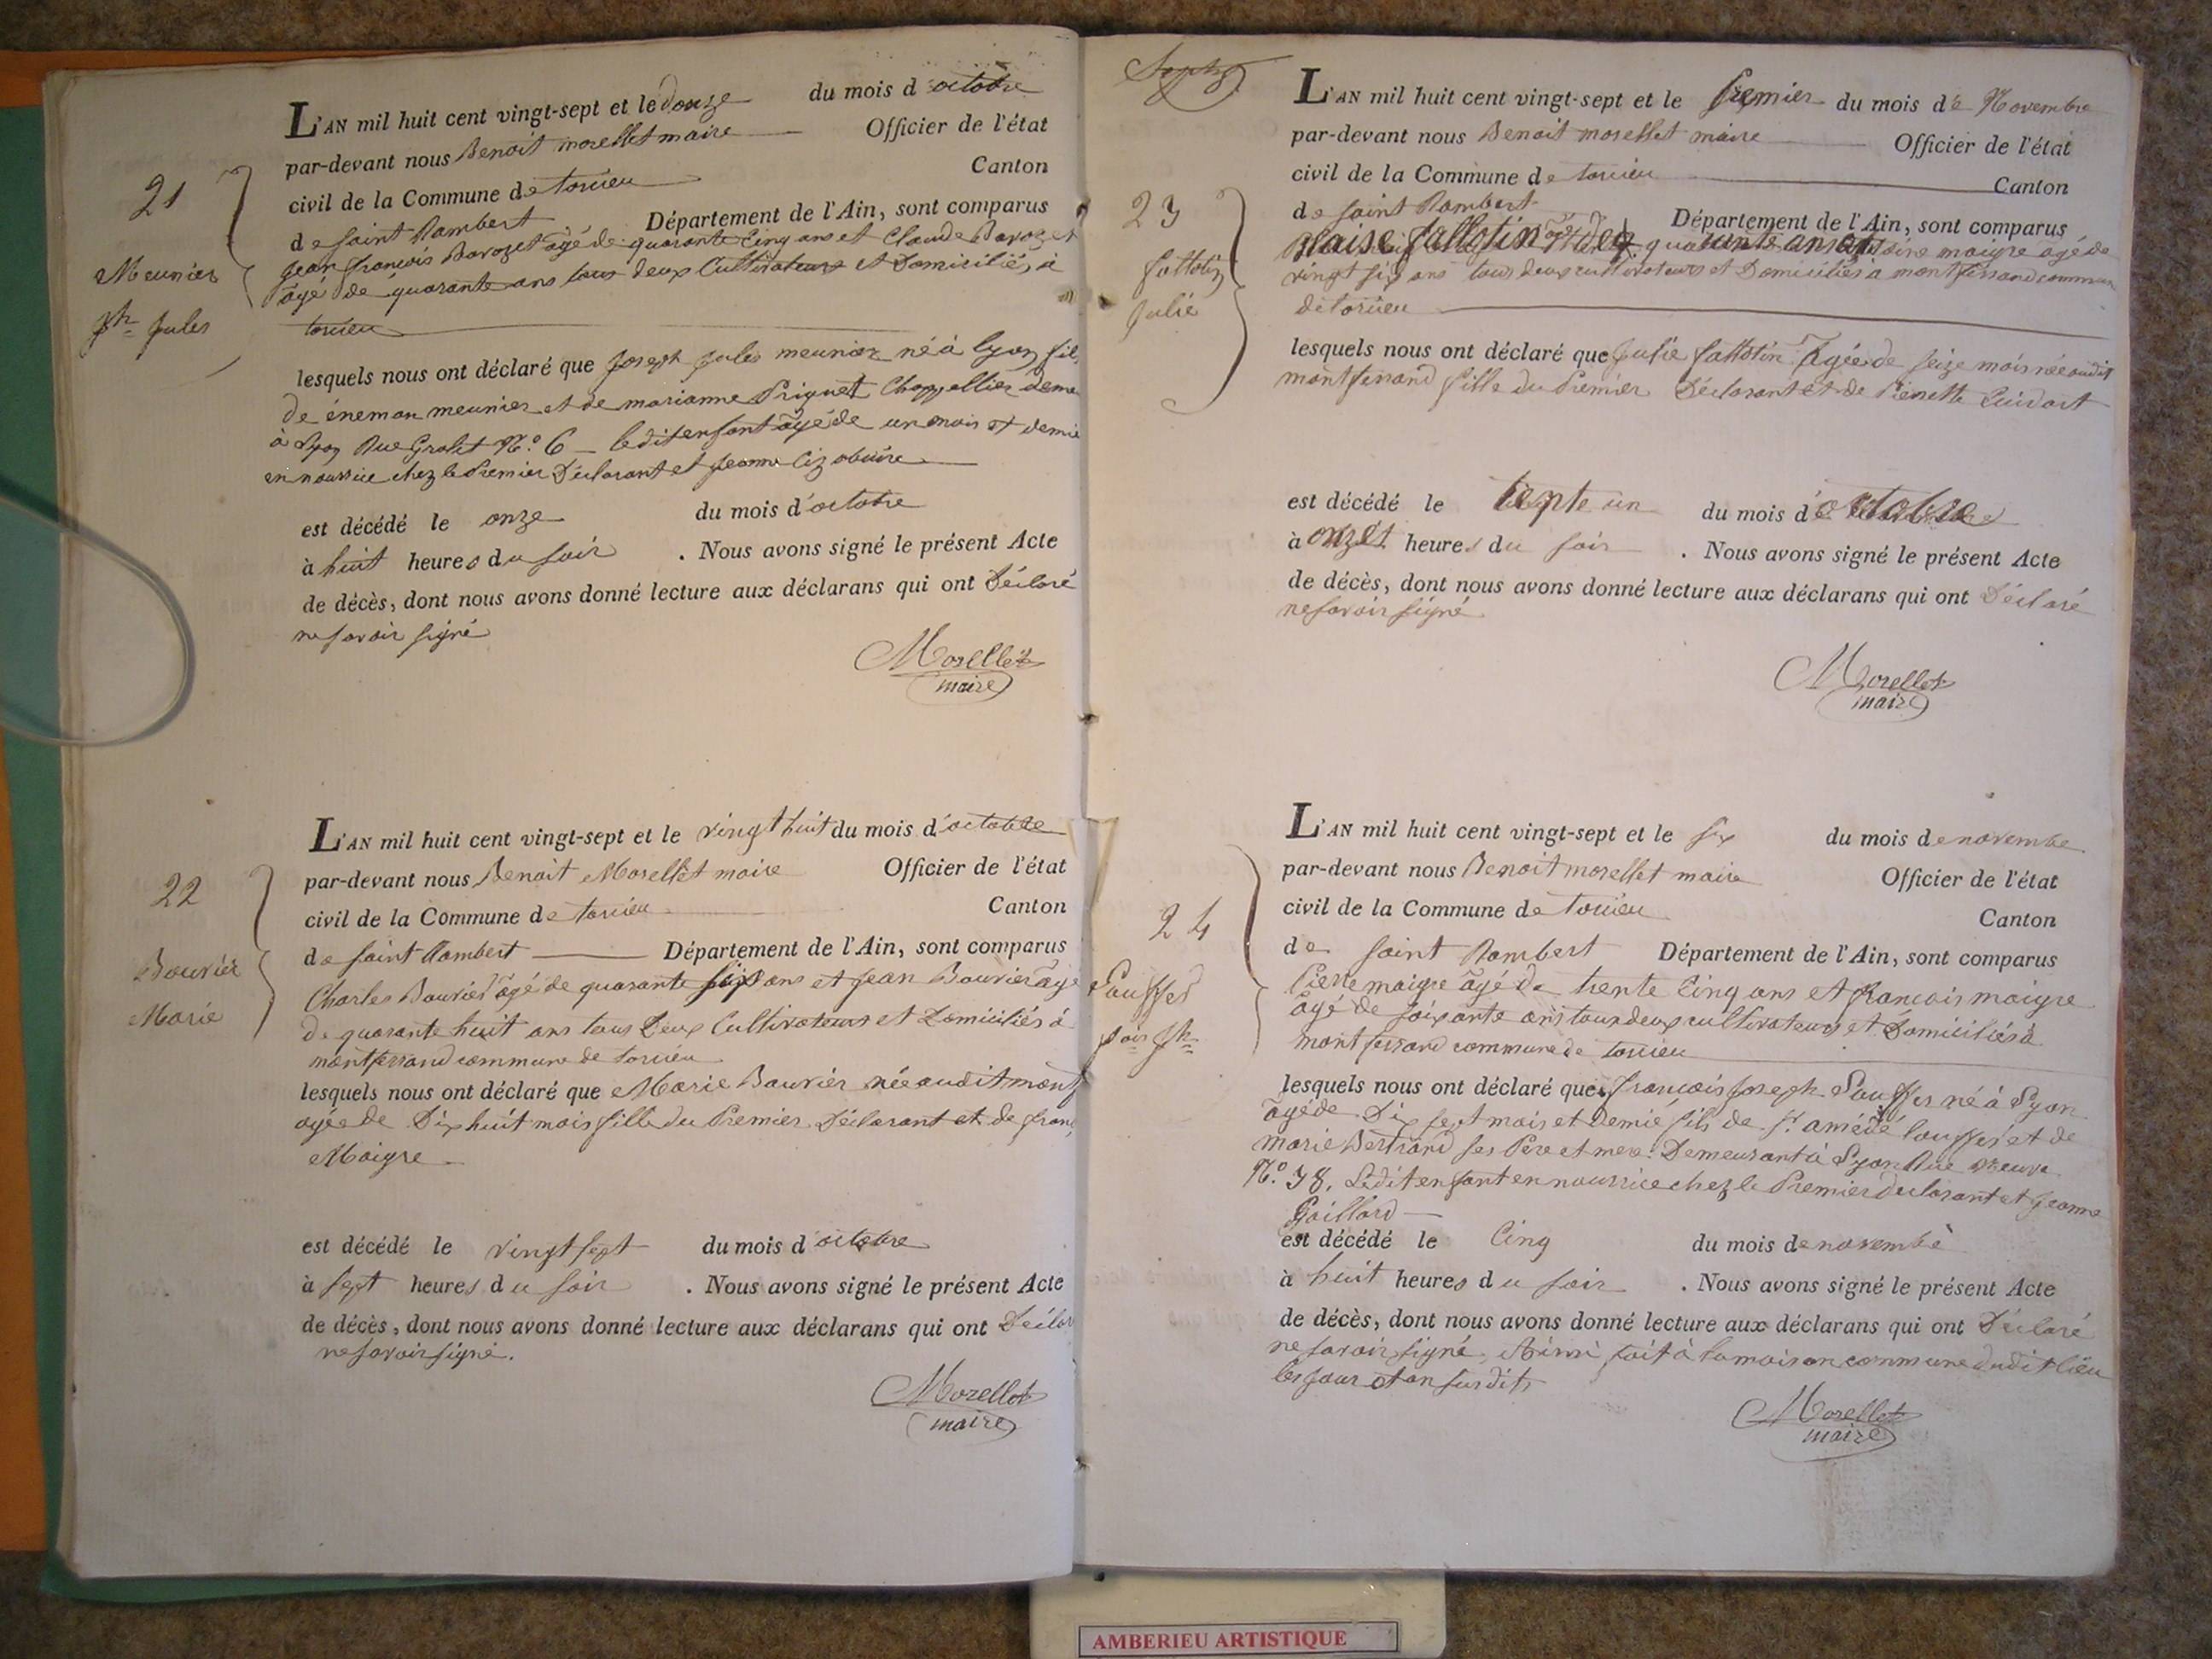 L'AN mil huit cent vingt-sept et le douze du mois d'octobre
par-devant nous Benoit morellet maire Officier de l'état
civil de la Commune de torcieu Canton
de saint Rambert Département de l'Ain, sont comparus
jean françois Barozet agé de quarante cinq ans et Claude Barozet
agé de quarante ans tous deux Cultivateurs et Domiciliés à
torcieu
21
Meunier
Jph Jules
lesquels nous ont déclaré que joseph jules meunier né à lyon fils
de énemon meunier et de marianne Priquet Chappellier deme
à Lyon Rue Grolet N.º 6 ledit enfant agé de un mois et demie
en nourrice chez le Premier Déclarant et jeanne
est décédé le onze du mois d'octobre
à huit heures du soir . Nous avons signé le présent Acte
de décès, dont nous avons donné lecture aux déclarans qui ont Déclaré
ne savoir signé
Morellet
maire
L'AN mil huit cent vingt-sept et le vingt huit du mois d'octobre
par-devant nous Benoit Morellet maire Officier de l'état
civil de la Commune de torcieu Canton
de saint Rambert Département de l'Ain, sont comparus
Charles Bouvier agé de quarante six ans et jean Bouvier agé
de quarante huit ans tous Deux Cultivateurs et Domiciliés à
montferrand commune de torcieu
22
Bouvier
Marie
lesquels nous ont déclaré que Marie Bouvier née audit montf
agée de Dix huit mois fille du Premier Déclarant et de fran
Maigre
est décédé le vingt sept du mois d'octobre
à sept heures du soir . Nous avons signé le présent Acte
de décès, dont nous avons donné lecture aux déclarans qui ont Déclar
ne savoir signé.
Morellet
maire
L'AN mil huit cent vingt-sept et le premier du mois de Novembre
par-devant nous Benoit morellet maire Officier de l'état
civil de la Commune de torcieu Canton
de saint Rambert Département de l'Ain, sont comparus
Blaise fallotin agé de quarante ans et maigre agé de
vingt six ans tous deux cultivateurs et Domiciliés à montferrand commune
de torcieu
23
fallotin
julie
lesquels nous ont déclaré que julie fallotin agée de seize mois née audit
montferrand fille du Premier Déclarant et de Pierrette
est décédé le trente un du mois d'octobre
à onze heures du soir . Nous avons signé le présent Acte
de décès, dont nous avons donné lecture aux déclarans qui ont Déclaré
ne savoir signé
Morellet
maire
L'AN mil huit cent vingt-sept et le six du mois de novembre
par-devant nous Benoit morellet maire Officier de l'état
civil de la Commune de torcieu Canton
de saint Rambert Département de l'Ain, sont comparus
Pierre maigre agé de trente Cinq ans et françois maigre
agé de soixante ans tous deux cultivateurs et Domiciliés à
montferrand commune de torcieu
24
lesquels nous ont déclaré que françois joseph né à Lyon
agé de Dix sept mois et Demie fils de Sr. amédé et de
marie Bertrand ses Père et mere Demeurant à Lyon Rue neuve
N.º 38. Ledit enfant en nourrice chez le Premier declarant et jeanne
Gaillard
est décédé le Cinq du mois de novembre
à huit heures du soir . Nous avons signé le présent Acte
de décès, dont nous avons donné lecture aux déclarans qui ont Déclaré
ne savoir signé, Ainsi fait à la maison commune dudit lieu
les jour et an susdits
Morellet
maire
AMBERIEU ARTISTIQUE